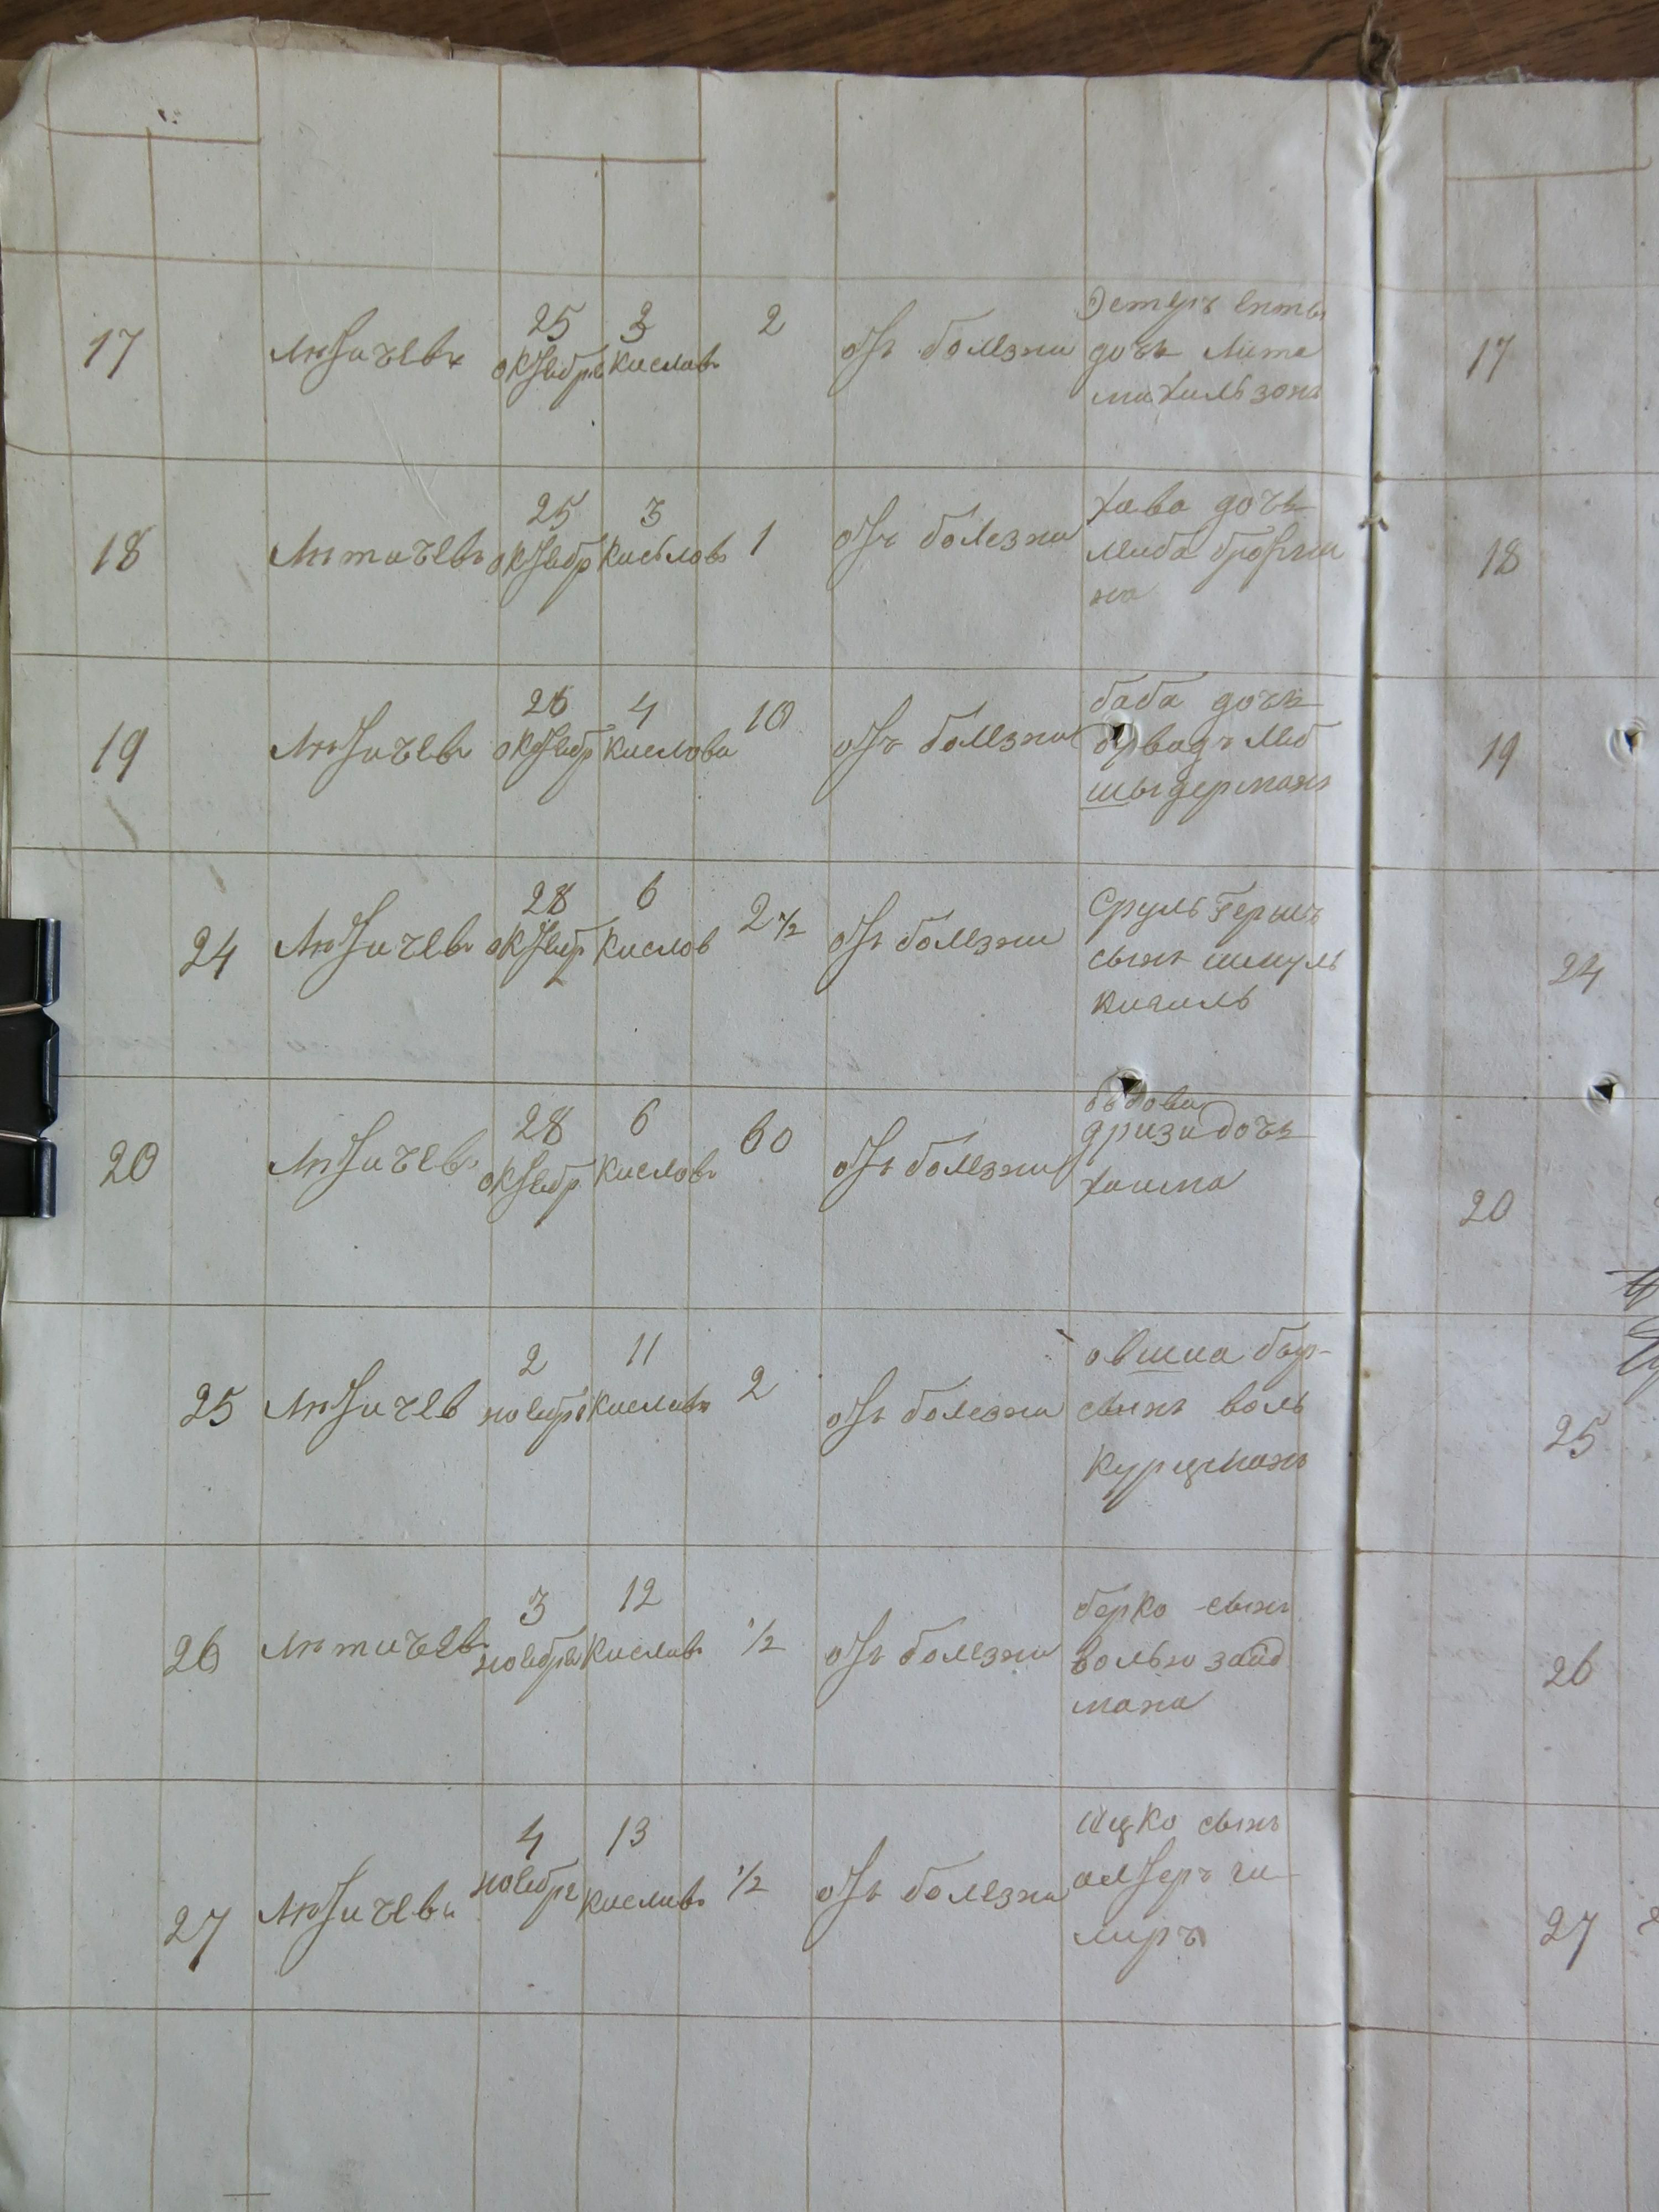 17 лютичевѣ 25 октебръ 3 киславъ 2 отъ болезни Эстеръ ента 17
дочь лита
михильзонъ
18 лютичевъ 25 октебр 3 кислов 1 отъ болезни хава дочь 18
либа
на
19 лютичевъ 26 октебр 4 кислова 10 отъ болезни баба дочь 19
либ
шыдерманъ
24 лютичевъ 28 октебр 6 кислов 2 1/2 отъ болезни Сруль Гершъ 24
сынъ шмуль
кигиль
20 лютичевъ 28 октебр 6 кисловъ 60 отъ болезни вдова 20
дочь
хаима
25 лютичев 2 ноебре 11 киславъ 2 отъ болезни овшиа бер- 25
сынъ воль
курцманъ
26 лютичевъ 3 ноебре 12 киславъ 1/2 отъ болезни берко сынъ 26
волью зайд
мана
27 лютичевъ 4 ноебре 13 киславъ 1/2 отъ болезни Ицко сынъ 27